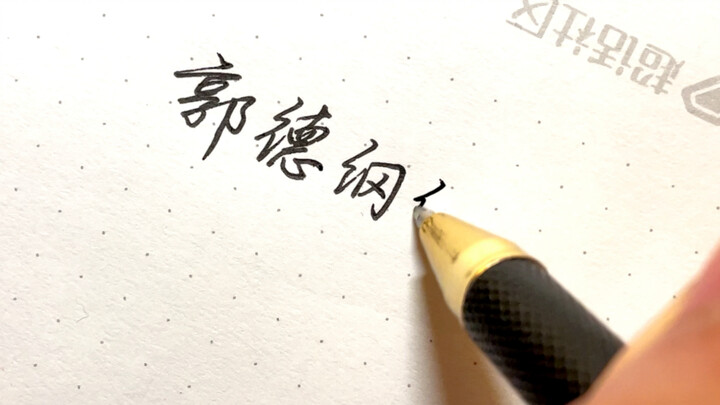 超话社区
郭德纲